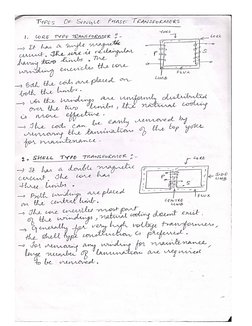 TYPES OF SINGLE PHASE TRANSFORMERS
1. CORE TYPE TRANSFORMER :-
→ It has a single magnetic
circuit. The core is rectangular
having two limbs. The
winding encircles the core
→ Both the coils are placed on
both the limbs.
→ As the windings are uniformly distributed
over the two limbs, the natural cooling
is more effective.
→ The coils can be easily removed by
removing the lamination of the top yoke
for maintenance.
CORE
LIMB
FLUX
2. SHELL TYPE TRANSFORMER :-
→ It has a double magnetic
circuit. The core has
three limbs.
→ Both windings are placed
on the central limb.
→ The core encircles most part
of the windings, natural cooling doesnt exist.
→ Generally for very high voltage transformers,
the shell type construction is preferred.
→ For removing any winding for maintenance,
large number of lamination are required
to be removed.
CORE
SIDE
LIMB
CENTRE
LIMB
FLUX